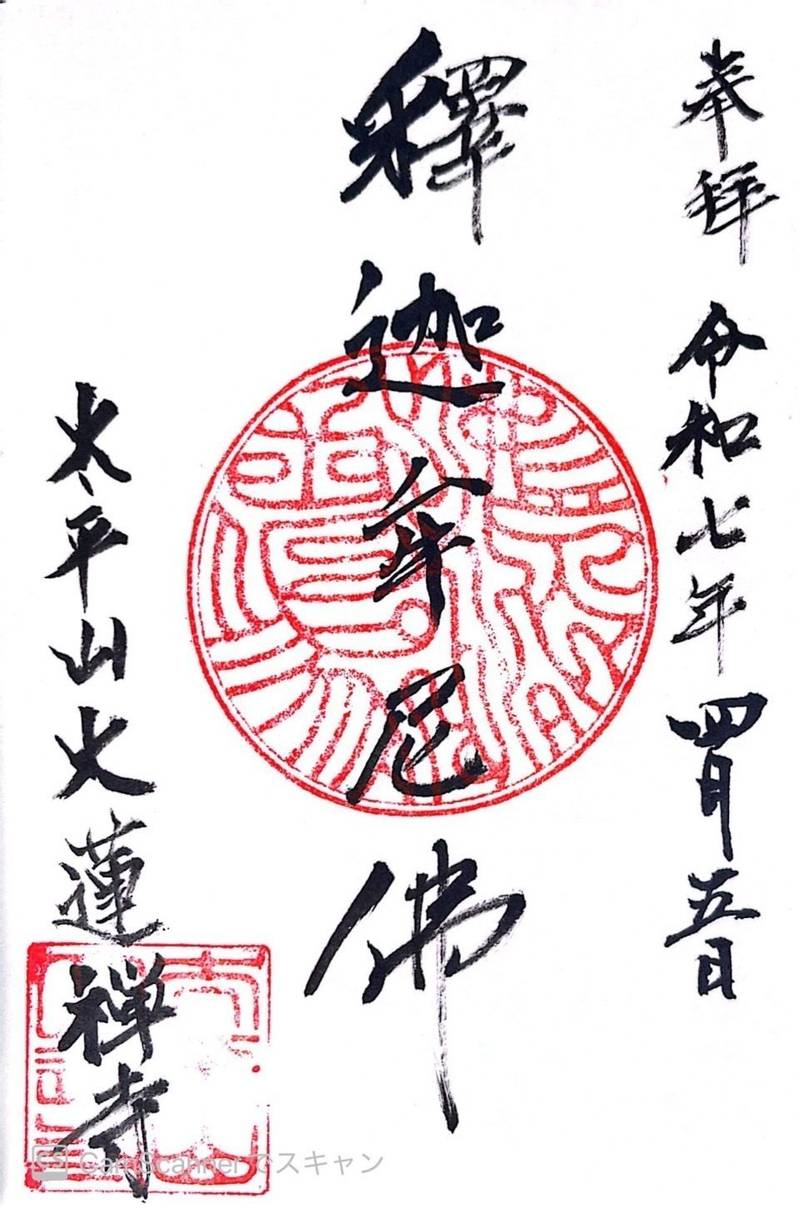 奉拜 令和七年四月五日
釋迦牟尼佛
太平山大蓮禅寺
CamScannerでスキャン